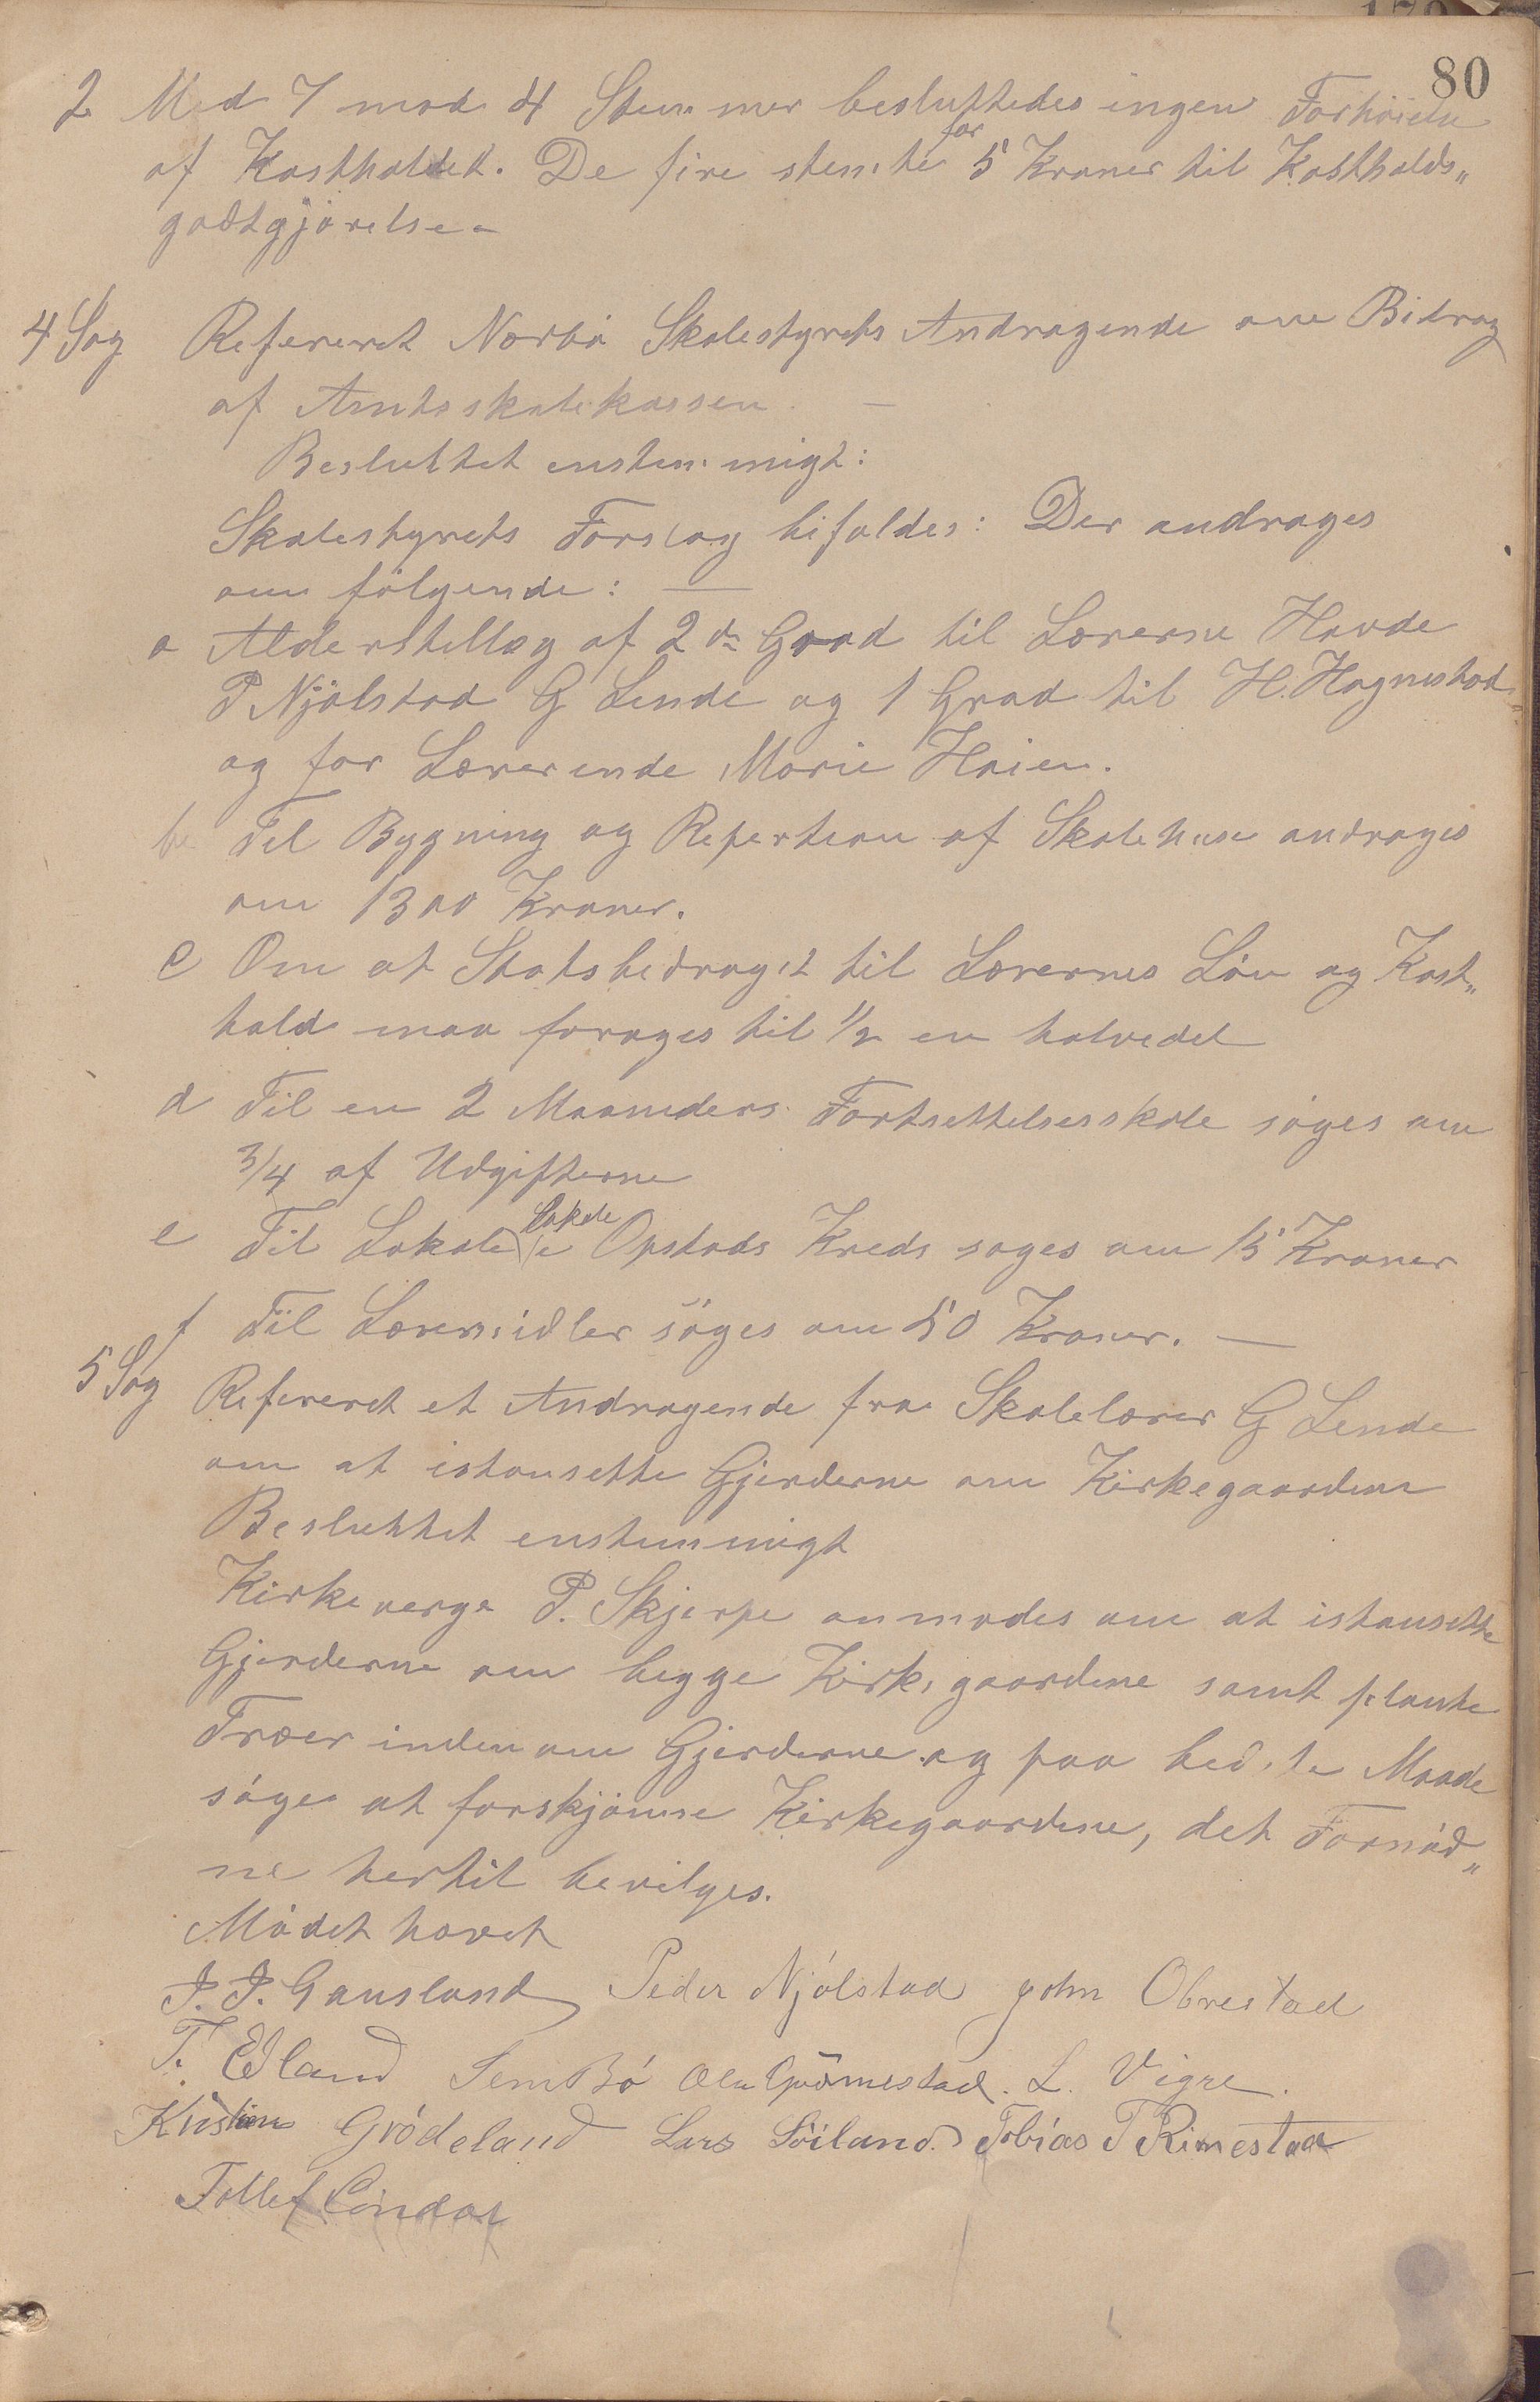 80
2 Med 7 mod 4 Stemmer besluttedes ingen Forhöielse
af Kostholdet. De fire stemte for 5 Kroner til Kostholds„
godtgjörelse.
4 Sag Refereret Nærbö Skolestyrets Andragende om Bidrag
af Amtsskolekassen. —
Besluttet enstemmigt:
Skolestyrets Forslag bifaldes: Der andrages
om fölgende: —
a Alderstillæg af 2den Grad til Lærerne Havde
P Njölstad G Lende og 1 Grad til H. Hognestad
og for Lærerinde Marie Höien.
b Til Bygning og Repertion af Skolehuse andrages
om 1300 Kroner.
c Om at Statsbidraget til Lærernes Lön og Kost„
hold maa foröges til 1/2 en halvedel
d Til en 2 Maaneders Fortsettelsesskole söges om
3/4 af Udgifterne
e Til Lokale i Opstads Kreds söges om 15 Kroner
f Til Læremidler söges om 50 Kroner. —
5 Sag Refereret et Andragende fra Skolelærer G Lende
om at istansette Gjerderne om Kirkegaardene
Besluttet enstemmigt
Kirkeverge P. Skjerpe anmodes om at istansette
Gjerderne om begge Kirkegaardene samt plante
Træer indenom Gjerderne og paa bedste Maade
söge at forskjönne Kirkegaardene, det Fornöd„
ne hertil bevilges.
Mödet hævet
J. J. Gausland Peder Njölstad John Obrestad
T. Edland Sem Bö Ola Grömestad. L. Vigre.
Kristian Grödeland Lars Söiland. Tobias T Rimestad
Tollef Löndal